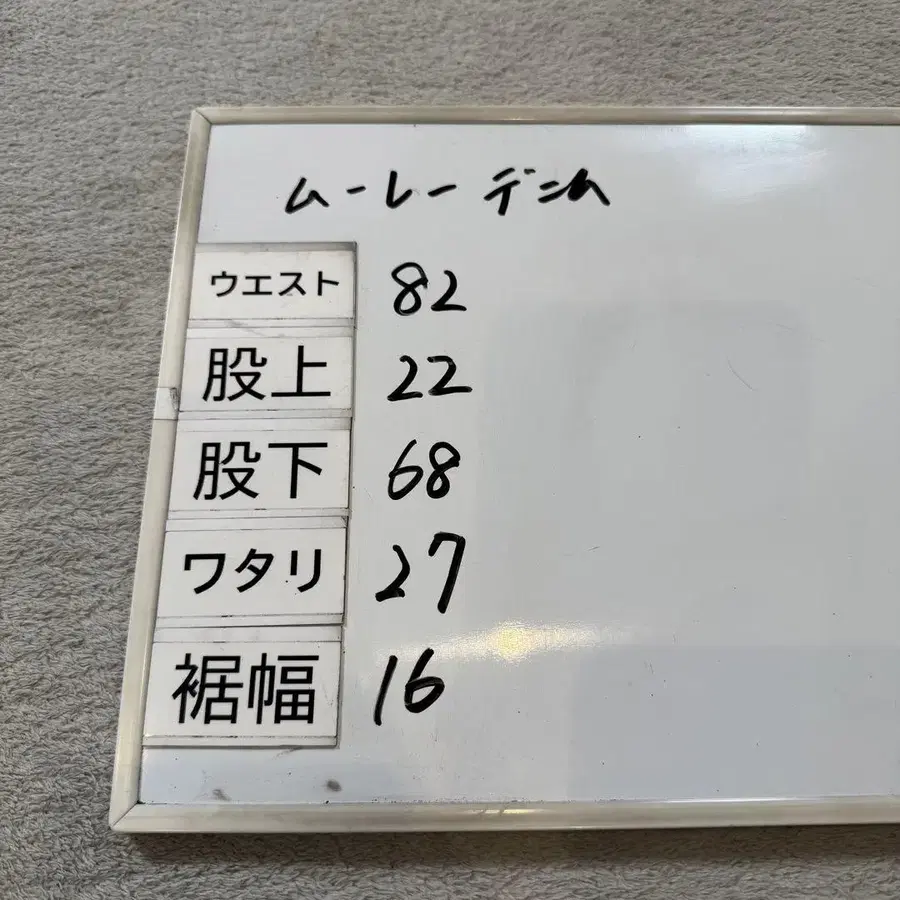 ムーレー デニム
ウエスト 82
股上 22
股下 68
ワタリ 27
裾幅 16